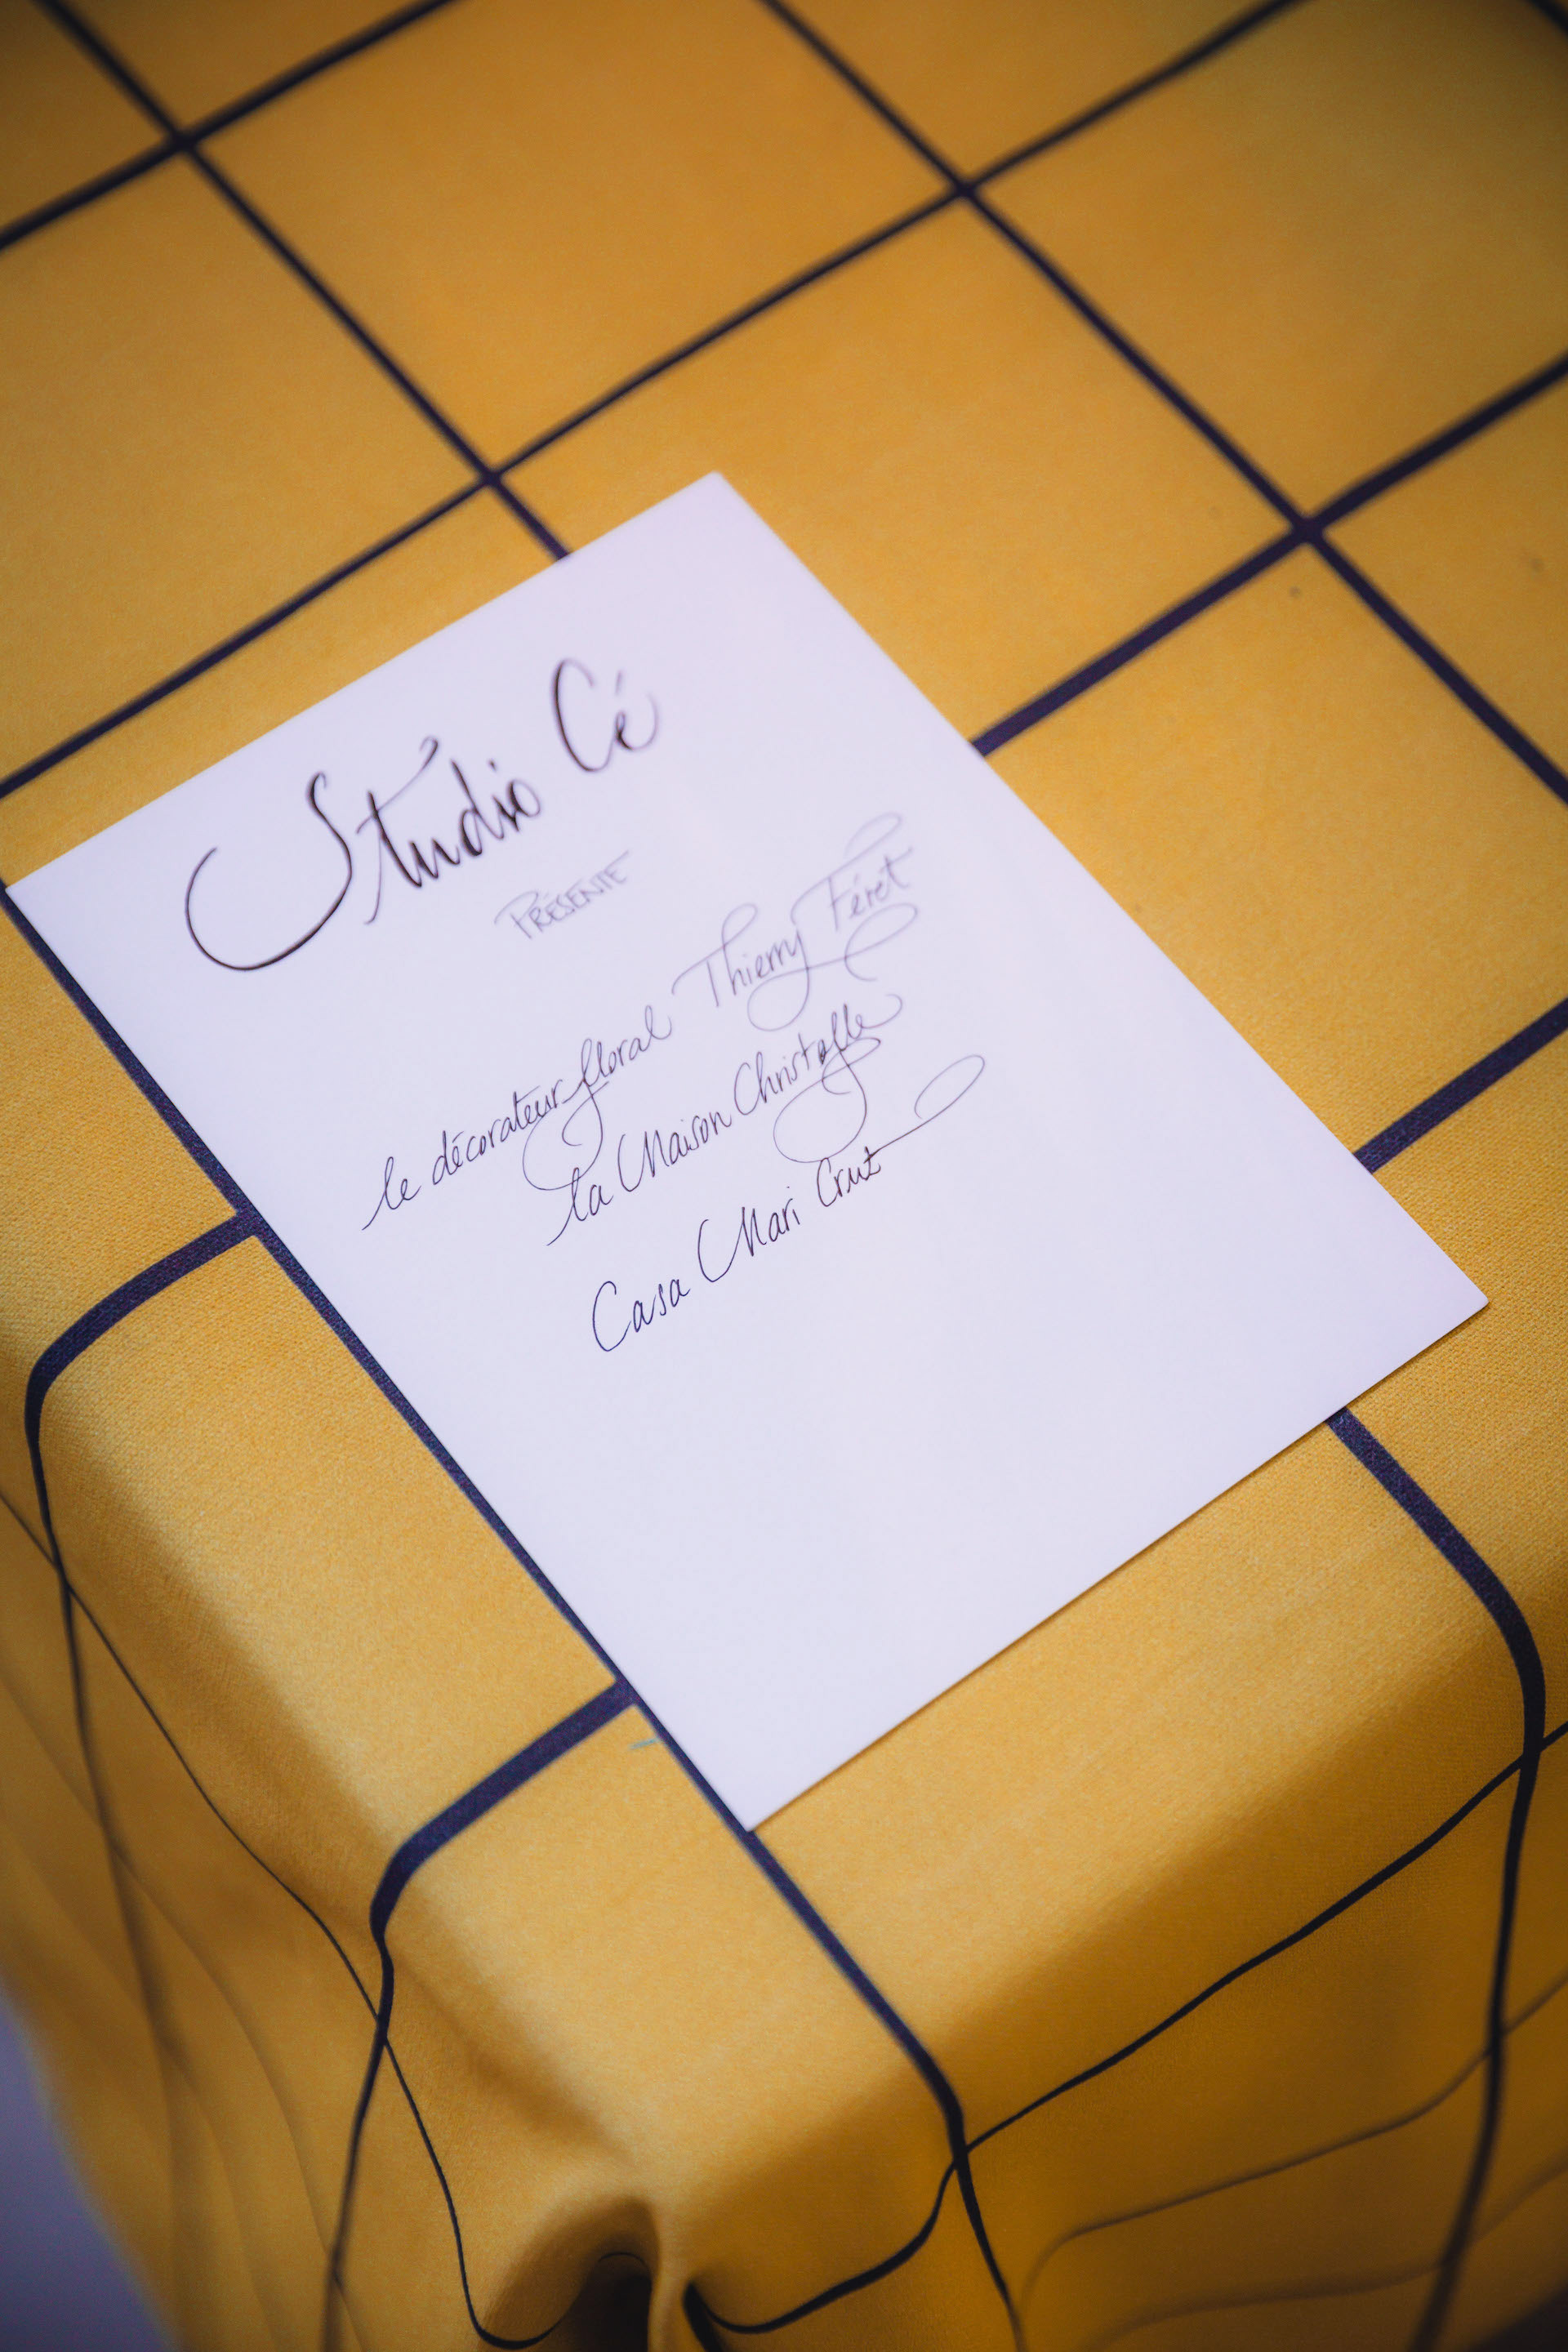 Studio Cé
PRÉSENTE
le décorateur floral Thierry Féret
la Maison Christofle
Casa Mari Cruz